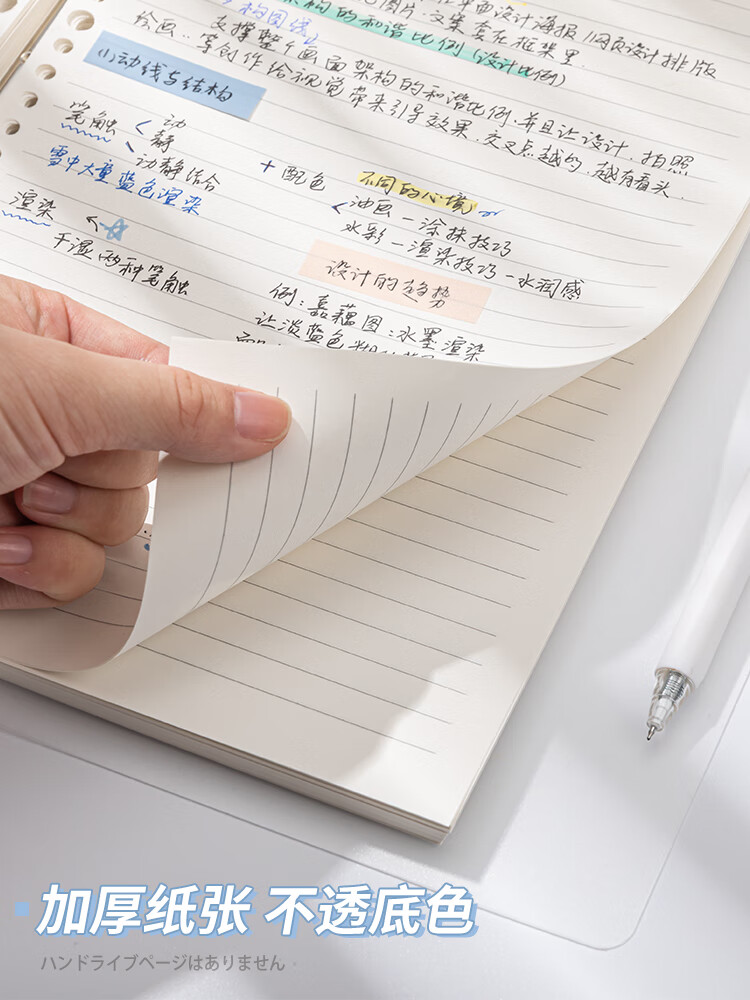 平面设计海报 网页设计排版
图片.文案套在框架里.
构图线
架构的和谐比例(设计比例)
支撑整个画面架构的和谐比例.并且让设计.拍照
绘画..等创作给视觉带来引导效果.交叉点越的.越有看头.
(1)动线与结构
笔触 < 动
静
动静结合
雪中大童蓝色渲染
+ 配色 不同的心境
油画 — 涂抹技巧
水彩 — 渲染技巧 — 水润感
渲染
干湿两种笔触
设计的趋势
例:嘉藕图:水墨渲染
让淡蓝色
加厚纸张 不透底色
ハンドライブページはありません